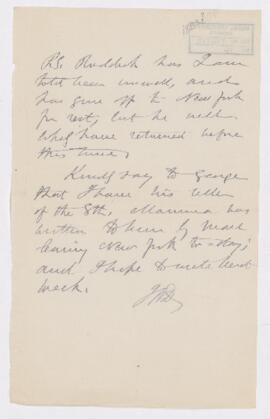 P.S. Ruddick has I am
told been unwell, and
has gone off to New York
for rest, but he will
have returned before
this time.
Kindly say to George
that I have his letter
of the 8th, Mamma has
written to him by mail
leaving New York to-day;
and I hope to write next
week.